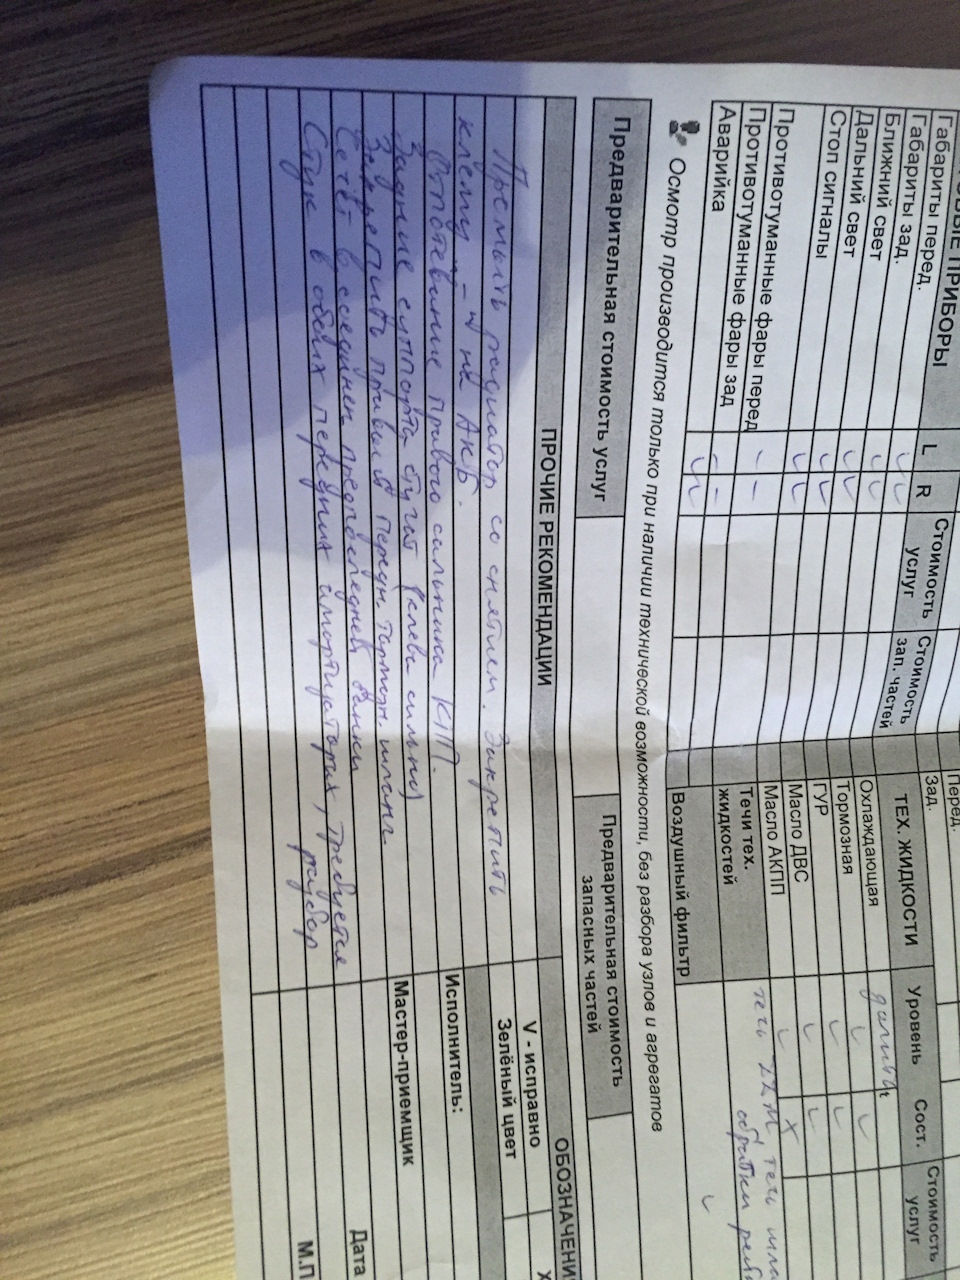 ОВЫЕ ПРИБОРЫ L R Стоимость услуг Стоимость зап. частей
Габариты перед.
Габариты зад.
Ближний свет
Дальний свет
Стоп сигналы
Противотуманные фары перед
Противотуманные фары зад
Аварийка
Перед.
Зад.
ТЕХ. ЖИДКОСТИ Уровень Сост. Стоимость услуг
Охлаждающая
Тормозная
ГУР
Масло ДВС
Масло АКПП
Течи тех. жидкостей течь ГУМ течь
обратки
Воздушный фильтр
Осмотр производится только при наличии технической возможности, без разбора узлов и агрегатов
Предварительная стоимость услуг
Предварительная стоимость запасных частей
ПРОЧИЕ РЕКОМЕНДАЦИИ
Промыть радиатор со снятием. Закрепить
клемму "-" на АКБ.
Запотевание правого сальника КПП.
Задние суппорта стучат (слева сильно)
Закрепить правый передн. тормозн. шланг
Сечёт в соединен предпоследней банки
Стук в обоих передних амортизаторах, требуется
разбор
ОБОЗНАЧЕНИ
V - исправно
Зелёный цвет
Х
Исполнитель:
Мастер-приемщик
Дата
М.П